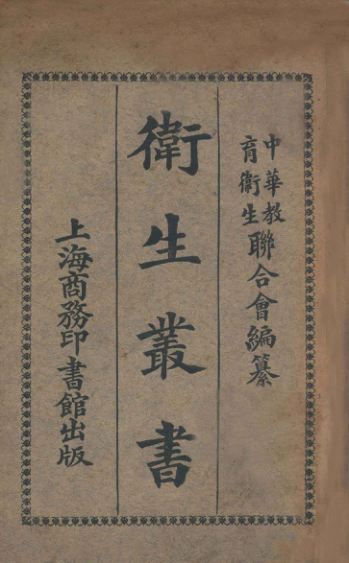 中華教育衛生聯合會編纂
衛生叢書
上海商務印書館出版